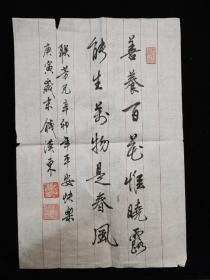 善養百花惟曉露
能生萬物是春風
联芳兄辛卯年平安快樂
庚寅歲末钱漢東